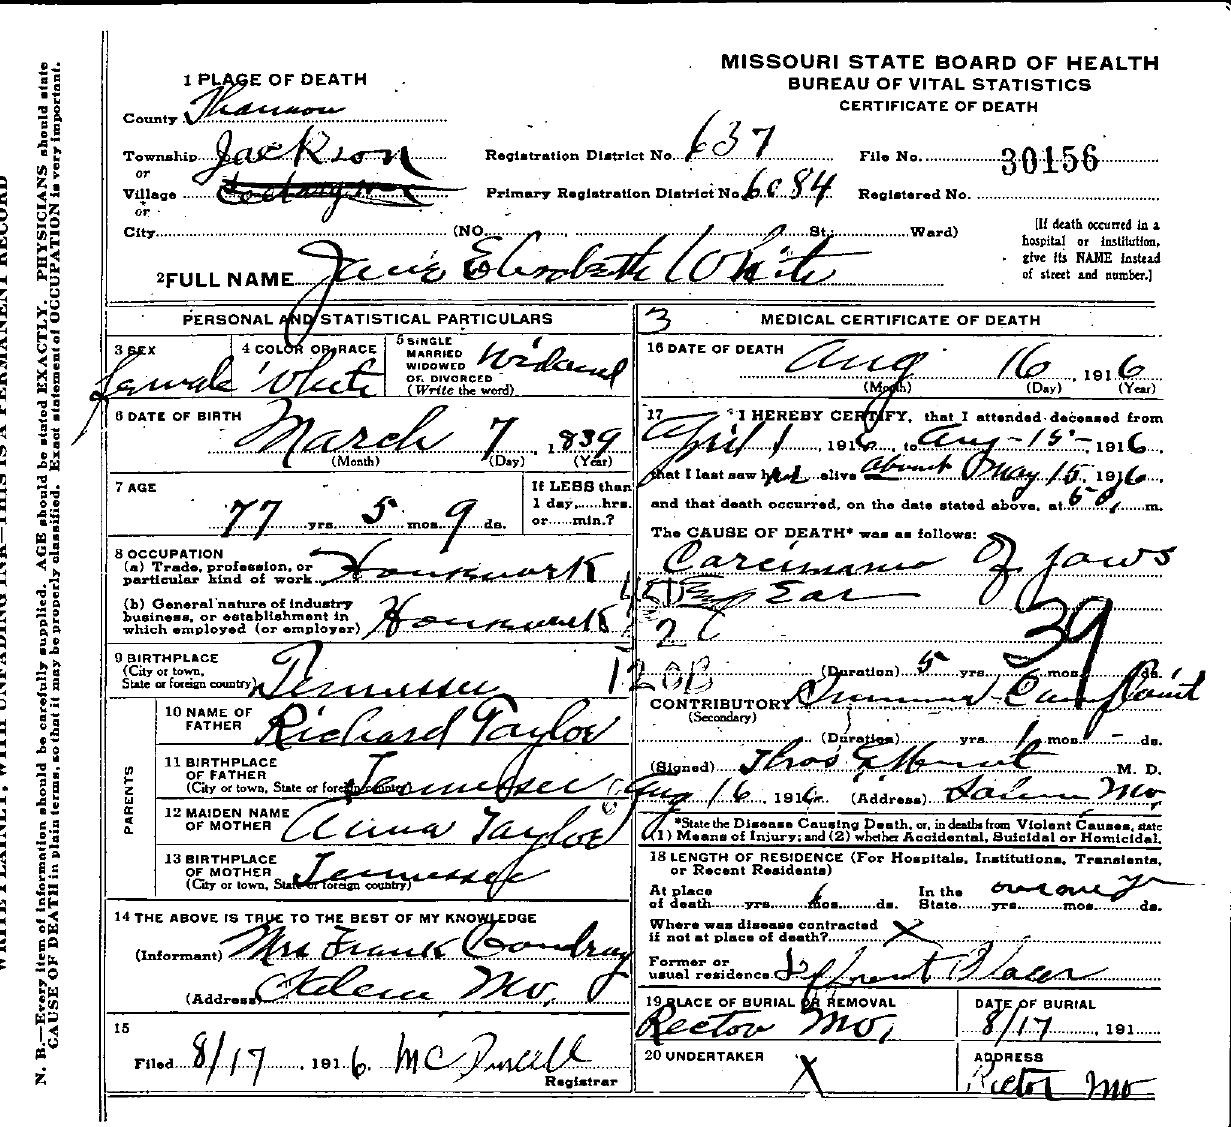 MISSOURI STATE BOARD OF HEALTH
BUREAU OF VITAL STATISTICS
CERTIFICATE OF DEATH
1 PLACE OF DEATH
County Shannon
Township Jackson Registration District No. 637 File No. 30156
or
Village Primary Registration District No. 6084 Registered No.
or
City (NO. , St.; Ward)
[If death occurred in a
hospital or institution,
give its NAME instead
of street and number.]
2 FULL NAME Jane Elisabeth White
PERSONAL AND STATISTICAL PARTICULARS
3 SEX
female
4 COLOR OR RACE
White
5 SINGLE
MARRIED
WIDOWED
OR DIVORCED
(Write the word)
Widowed
6 DATE OF BIRTH
March 7, 1839
(Month) (Day) (Year)
7 AGE
77 yrs. 5 mos. 9 ds.
If LESS than
1 day,......hrs.
or......min.?
8 OCCUPATION
(a) Trade, profession, or
particular kind of work Housework
(b) General nature of industry
business, or establishment in
which employed (or employer) Housework
9 BIRTHPLACE
(City or town,
State or foreign country) Tennessee
PARENTS
10 NAME OF
FATHER Richard Taylor
11 BIRTHPLACE
OF FATHER
(City or town, State or foreign country) Tennessee
12 MAIDEN NAME
OF MOTHER Anna Taylor
13 BIRTHPLACE
OF MOTHER
(City or town, State or foreign country) Tennessee
14 THE ABOVE IS TRUE TO THE BEST OF MY KNOWLEDGE
(Informant) Mrs Frank
(Address) Mo,
15
Filed 8/17, 1916.
Registrar
3 MEDICAL CERTIFICATE OF DEATH
16 DATE OF DEATH
Aug 16, 1916
(Month) (Day) (Year)
17 I HEREBY CERTIFY, that I attended deceased from
April 1, 1916, to Aug-15-, 1916,
that I last saw her alive about May 15, 1916,
and that death occurred, on the date stated above, at m.
The CAUSE OF DEATH* was as follows:
Carcinama of jaws
Ear
39
(Duration) 5 yrs. mos. ds.
CONTRIBUTORY Summer Complaint
(Secondary)
(Duration) yrs. 1 mos. - ds.
(Signed) Thos M. D.
Aug 16, 1916. (Address) Salem Mo,
*State the Disease Causing Death, or, in deaths from Violent Causes, state
(1) Means of Injury; and (2) whether Accidental, Suicidal or Homicidal.
18 LENGTH OF RESIDENCE (For Hospitals, Institutions, Transients,
or Recent Residents)
At place
of death yrs. 6 mos. ds.
In the
State yrs. mos. ds.
Where was disease contracted
if not at place of death? X
Former or
usual residence
19 PLACE OF BURIAL OR REMOVAL
Rector Mo,
DATE OF BURIAL
8/17, 191
20 UNDERTAKER
X
ADDRESS
Rector Mo
N. B.—Every item of information should be carefully supplied. AGE should be stated EXACTLY. PHYSICIANS should state
CAUSE OF DEATH in plain terms, so that it may be properly classified. Exact statement of OCCUPATION is very important.
WRITE PLAINLY, WITH UNFADING INK—THIS IS A PERMANENT RECORD